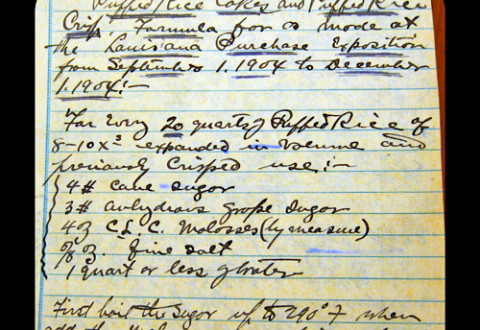 Puffed Rice Cakes and Puffed Rice
Crisp Formula for as made at
the Louisiana Purchase Exposition
from September 1, 1904 to December
1, 1904:-
For Every 20 quarts of Puffed Rice of
8-10 Xs expanded in volume and
previously Crisped use:-
4# cane sugar
3# anhydrous grape sugar
4 oz C. L. C. Molasses (by measure)
oz. fine salt
1 quart or less of water
First boil the sugar up to 290° F when
add the